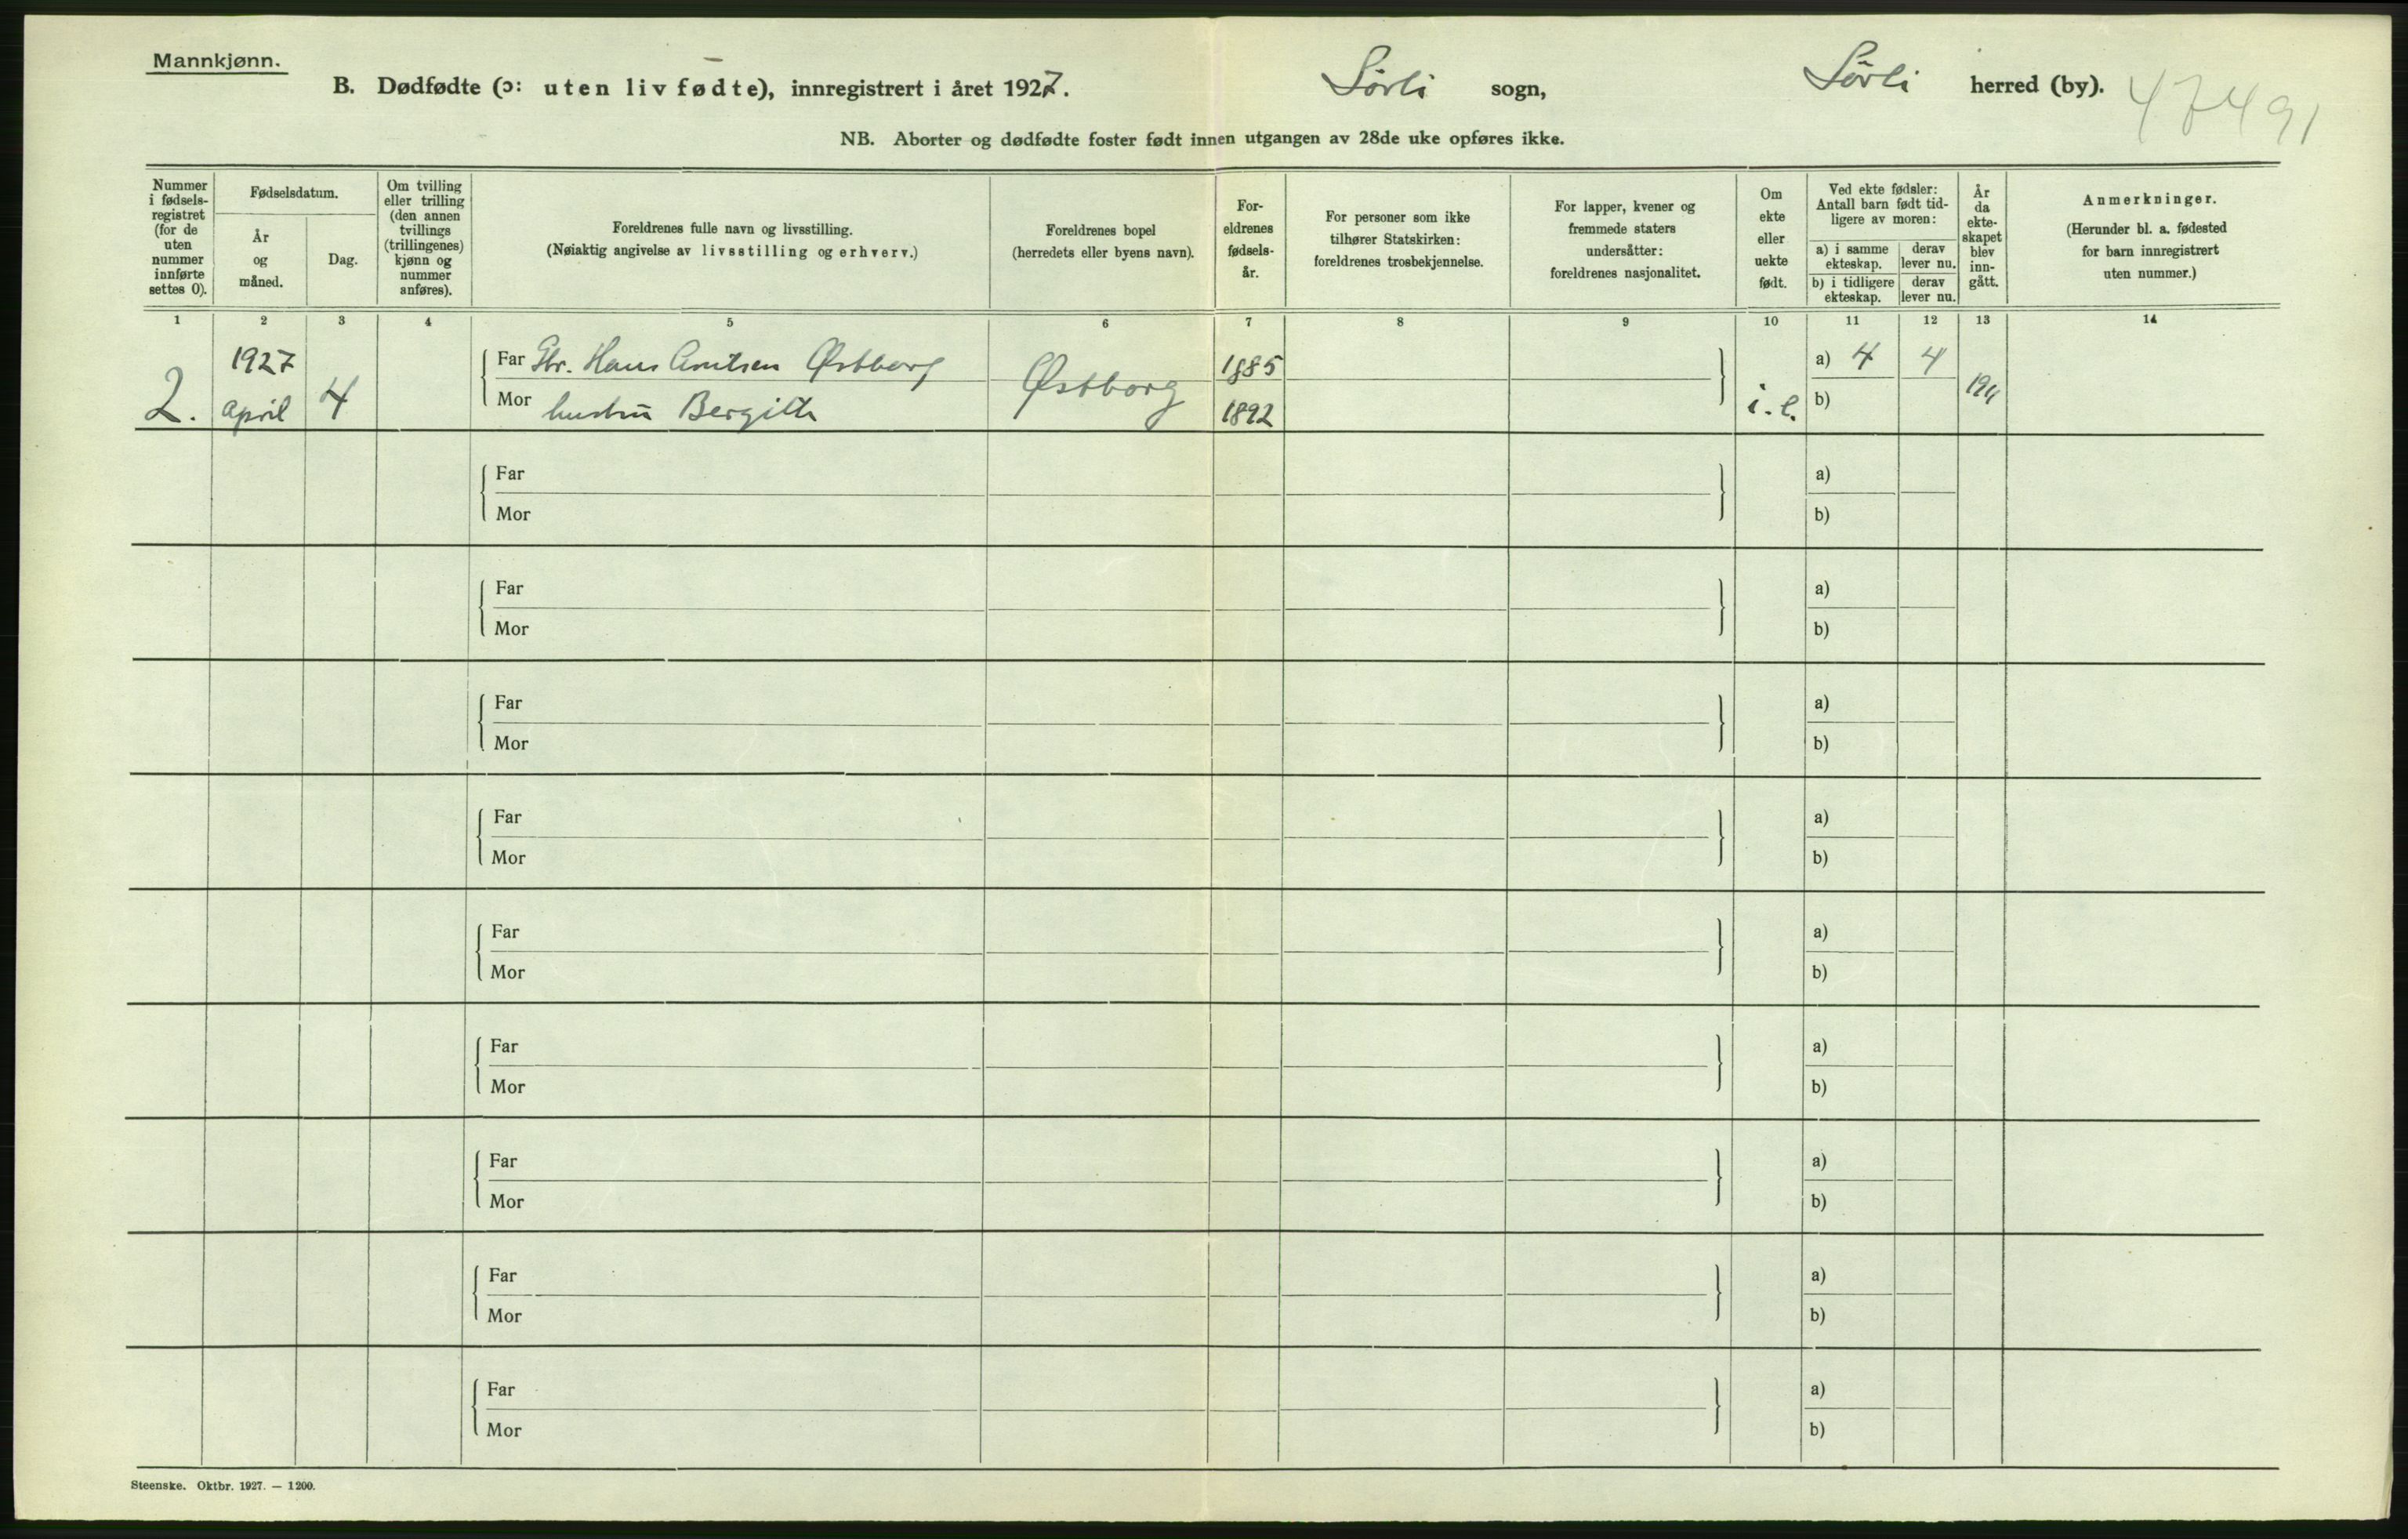 Mannkjønn.
B. Dødfødte (ɔ: uten liv fødte), innregistrert i året 1927. Sörli sogn, Sörli herred (by). 47491
NB. Aborter og dødfødte foster født innen utgangen av 28de uke opføres ikke.
Nummer
i fødsels-
registret
(for de
uten
nummer
innførte
settes 0).
Fødselsdatum.
År
og
måned.
Dag.
Om tvilling
eller trilling
(den annen
tvillings
(trillingenes)
kjønn og
nummer
anføres).
Foreldrenes fulle navn og livsstilling.
(Nøiaktig angivelse av livsstilling og erhverv.)
Foreldrenes bopel
(herredets eller byens navn).
For-
eldrenes
fødsels-
år.
For personer som ikke
tilhører Statskirken:
foreldrenes trosbekjennelse.
For lapper, kvener og
fremmede staters
undersåtter:
foreldrenes nasjonalitet.
Om
ekte
eller
uekte
født.
Ved ekte fødsler:
Antall barn født tid-
ligere av moren:
a) i samme
ekteskap.
derav
lever nu.
b) i tidligere
ekteskap.
derav
lever nu.
År
da
ekte-
skapet
blev
inn-
gått.
Anmerkninger.
(Herunder bl. a. fødested
for barn innregistrert
uten nummer.)
1 2 3 4 5 6 7 8 9 10 11 12 13 14
1927 Far Gbr. Hans Arntsen Østborg 1885 a) 4 4
2. april 4 Mor hustru Bergitte Østborg 1892 i.e. b) 1911
Far a)
Mor b)
Far a)
Mor b)
Far a)
Mor b)
Far a)
Mor b)
Far a)
Mor b)
Far a)
Mor b)
Far a)
Mor b)
Far a)
Mor b)
Far a)
Mor b)
Steenske. Oktbr. 1927. — 1200.